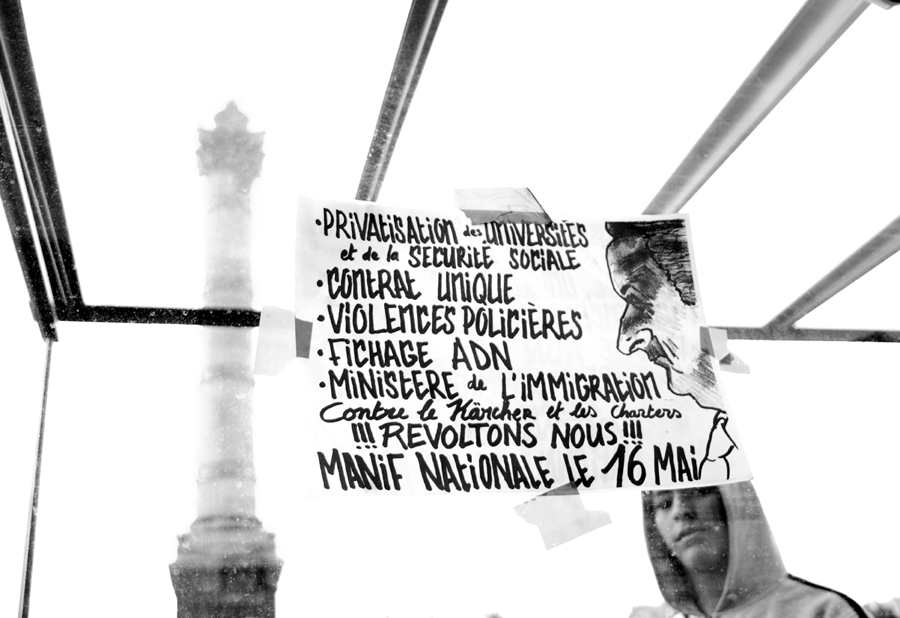 •PRIVATISATION des UNIVERSITÉS
et de la SECURITÉ SOCIALE
•CONTRAT UNIQUE
•VIOLENCES POLICIÈRES
•FICHAGE ADN
•MINISTERE de L'IMMIGRATION
Contre le Kärcher et les Charters
!!! REVOLTONS NOUS !!!
MANIF NATIONALE LE 16 MAI